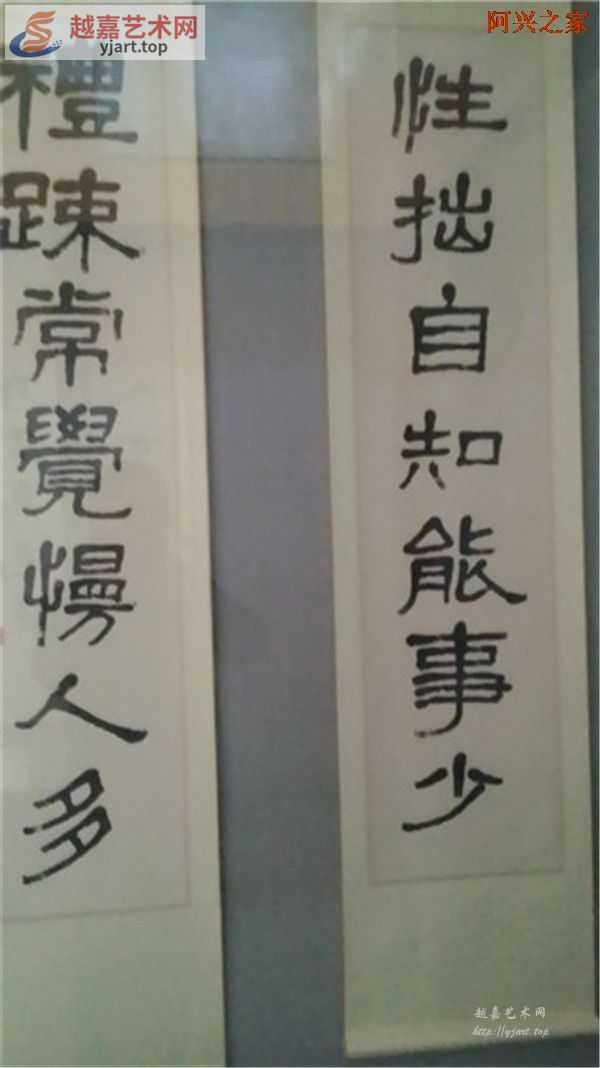 越嘉艺术网
yjart.top
阿兴之家
性拙自知能事少
禮踈常覺慢人多
越嘉艺术网
http://yjart.top